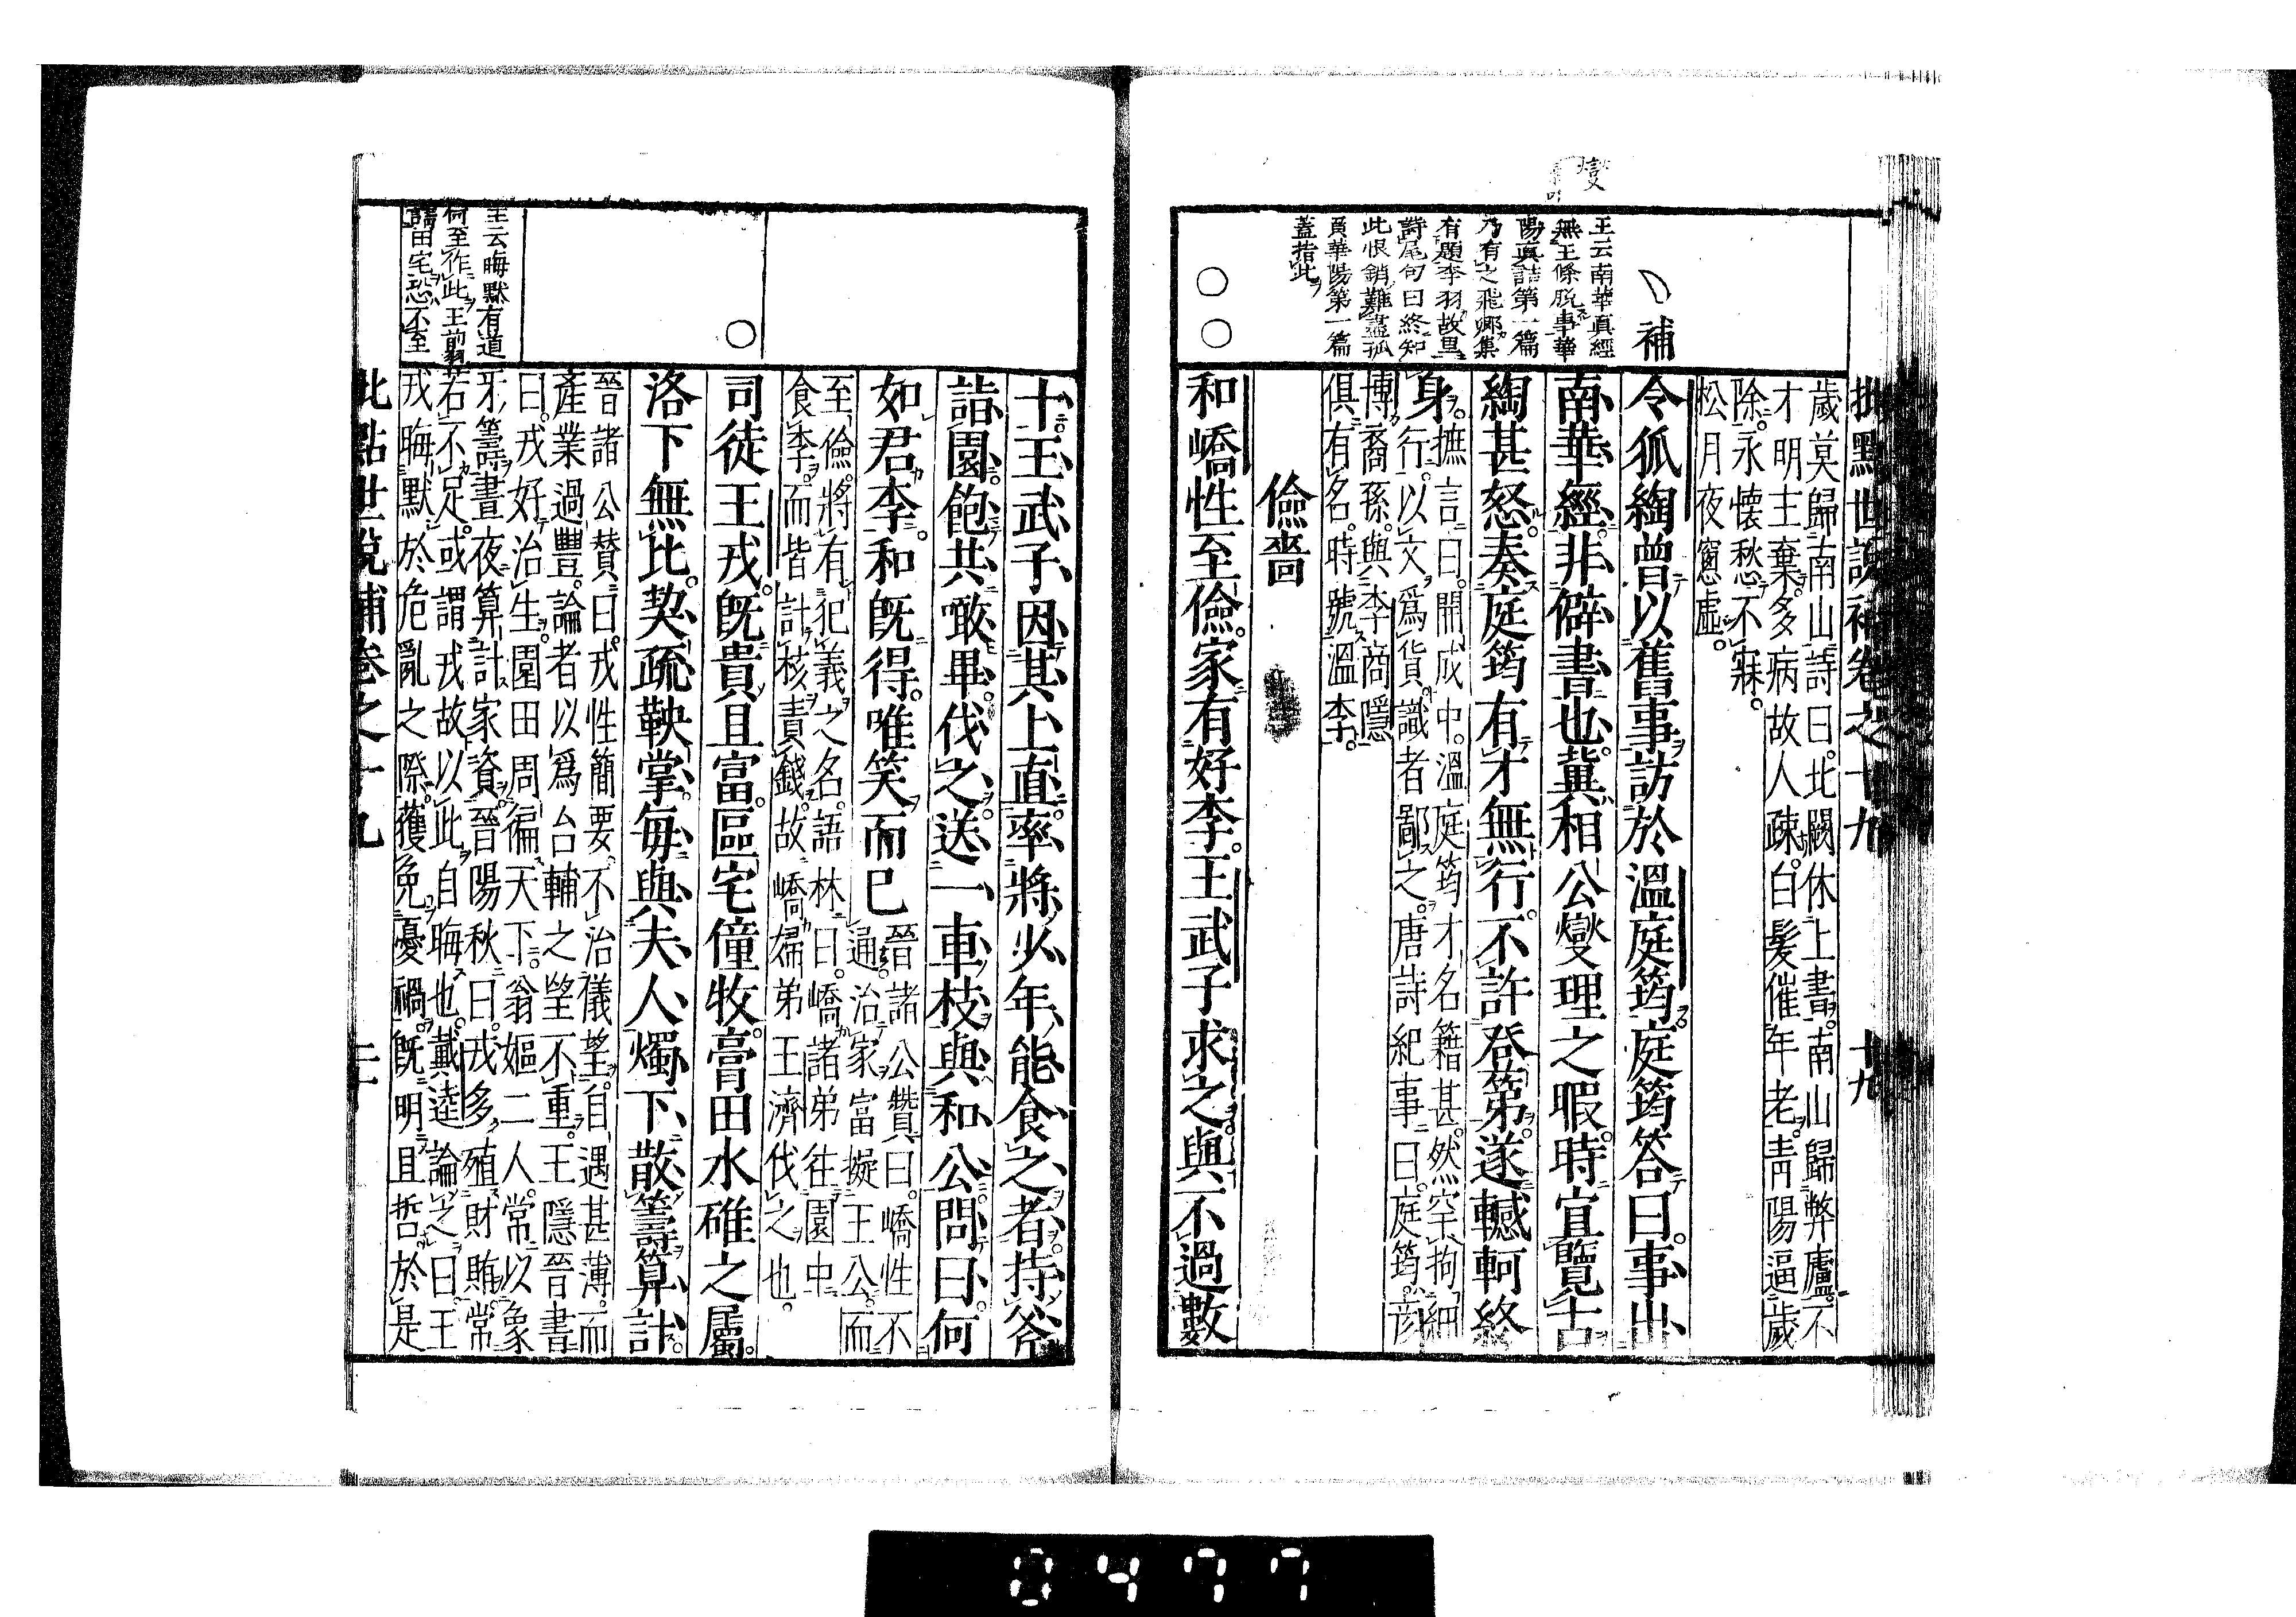 批點世說補卷之十九　十九
歲莫歸南山詩曰。北闕休上書。南山歸弊廬。不
才明主棄。多病故人疎。白髮催年老。青陽逼歲
除。永懷愁不寐。
松月夜窻虛。
補
令狐綯曾以舊事訪於溫庭筠。庭筠答曰。事出
南華經。非僻書也。冀相公燮理之暇。時宜覽古
綯甚怒。奏庭筠有才無行。不許登第。遂轗軻終
身。
摭言曰。開成中。溫庭筠才名籍甚。然罕拘細
行。以文爲貨。識者鄙之。唐詩紀事曰。庭筠。彥
博裔孫。與李商隱
俱有名。時號溫李。
王云南華眞經
無玉條脫事華
陽眞誥第一篇
乃有之飛卿集
有題李羽故里
詩尾句曰終知
此恨銷難盡孤
負華陽第一篇
蓋指此
燮
儉嗇
和嶠性至儉。家有好李。王武子求之。與不過數
十。王武子因其上直。率將少年能食之者。持斧
詣園。飽共噉畢。伐之。送一車枝與和公。問曰。何
如君李。和既得。唯笑而已
晉諸公贊曰。嶠性不
通。治家富擬王公。而
至儉。將有犯義之名。語林曰。嶠諸弟往園中
食李。而皆計核責錢。故嶠婦弟王濟伐之也。
司徒王戎。既貴且富。區宅僮牧。膏田水碓之屬。
洛下無比。契疏鞅掌。每與夫人燭下散籌算計。
晉諸公贊曰。戎性簡要。不治儀望。自遇甚薄。而
產業過豐。論者以爲台輔之望不重。王隱晉書
曰。戎好治生。園田周徧天下。翁嫗二人。常以象
牙籌晝夜算計家資。晉陽秋曰。戎多殖財賄。常
若不足。或謂戎故以此自晦也。戴逵論之曰。王
戎晦默於危亂之際。獲免憂禍。既明且哲。於是
王云晦默有道
何至作此王前
請田宅恐不至
批點世說補卷之十九　二十
0477